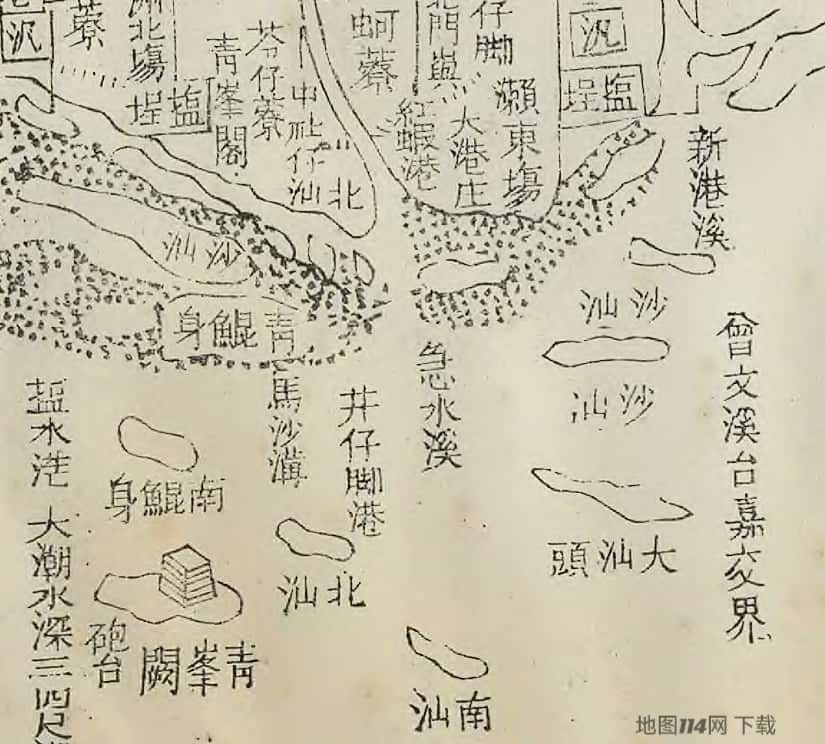 新港溪
曾文溪台嘉交界
塩埕
汛
瀨東塲
仔脚
大港庄
紅蝦港
蚵藔
沙汕
沙汕
大汕頭
急水溪
南汕
北汕
中社仔
芩仔藔
青峯閣
塩埕
洲北塲
藔
汛
沙汕
青鯤身
井仔脚港
馬沙溝
北汕
南鯤身
青峯闕
砲台
塩水港 大潮水深三四尺
地图114网 下载